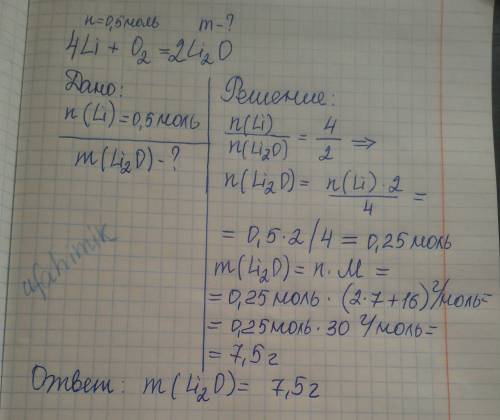 n=0,5моль m-?
4Li + O₂ = 2Li₂O
Дано:
n(Li)=0,5моль
m(Li₂O)-?
Решение:
n(Li)/n(Li₂O) = 4/2 ⇒
n(Li₂O) = n(Li)·2/4 =
= 0,5·2/4 = 0,25моль
m(Li₂O)= n·M =
= 0,25моль·(2·7+16)г/моль=
= 0,25моль·30г/моль=
= 7,5г
Ответ: m(Li₂O)= 7,5г
afahimik